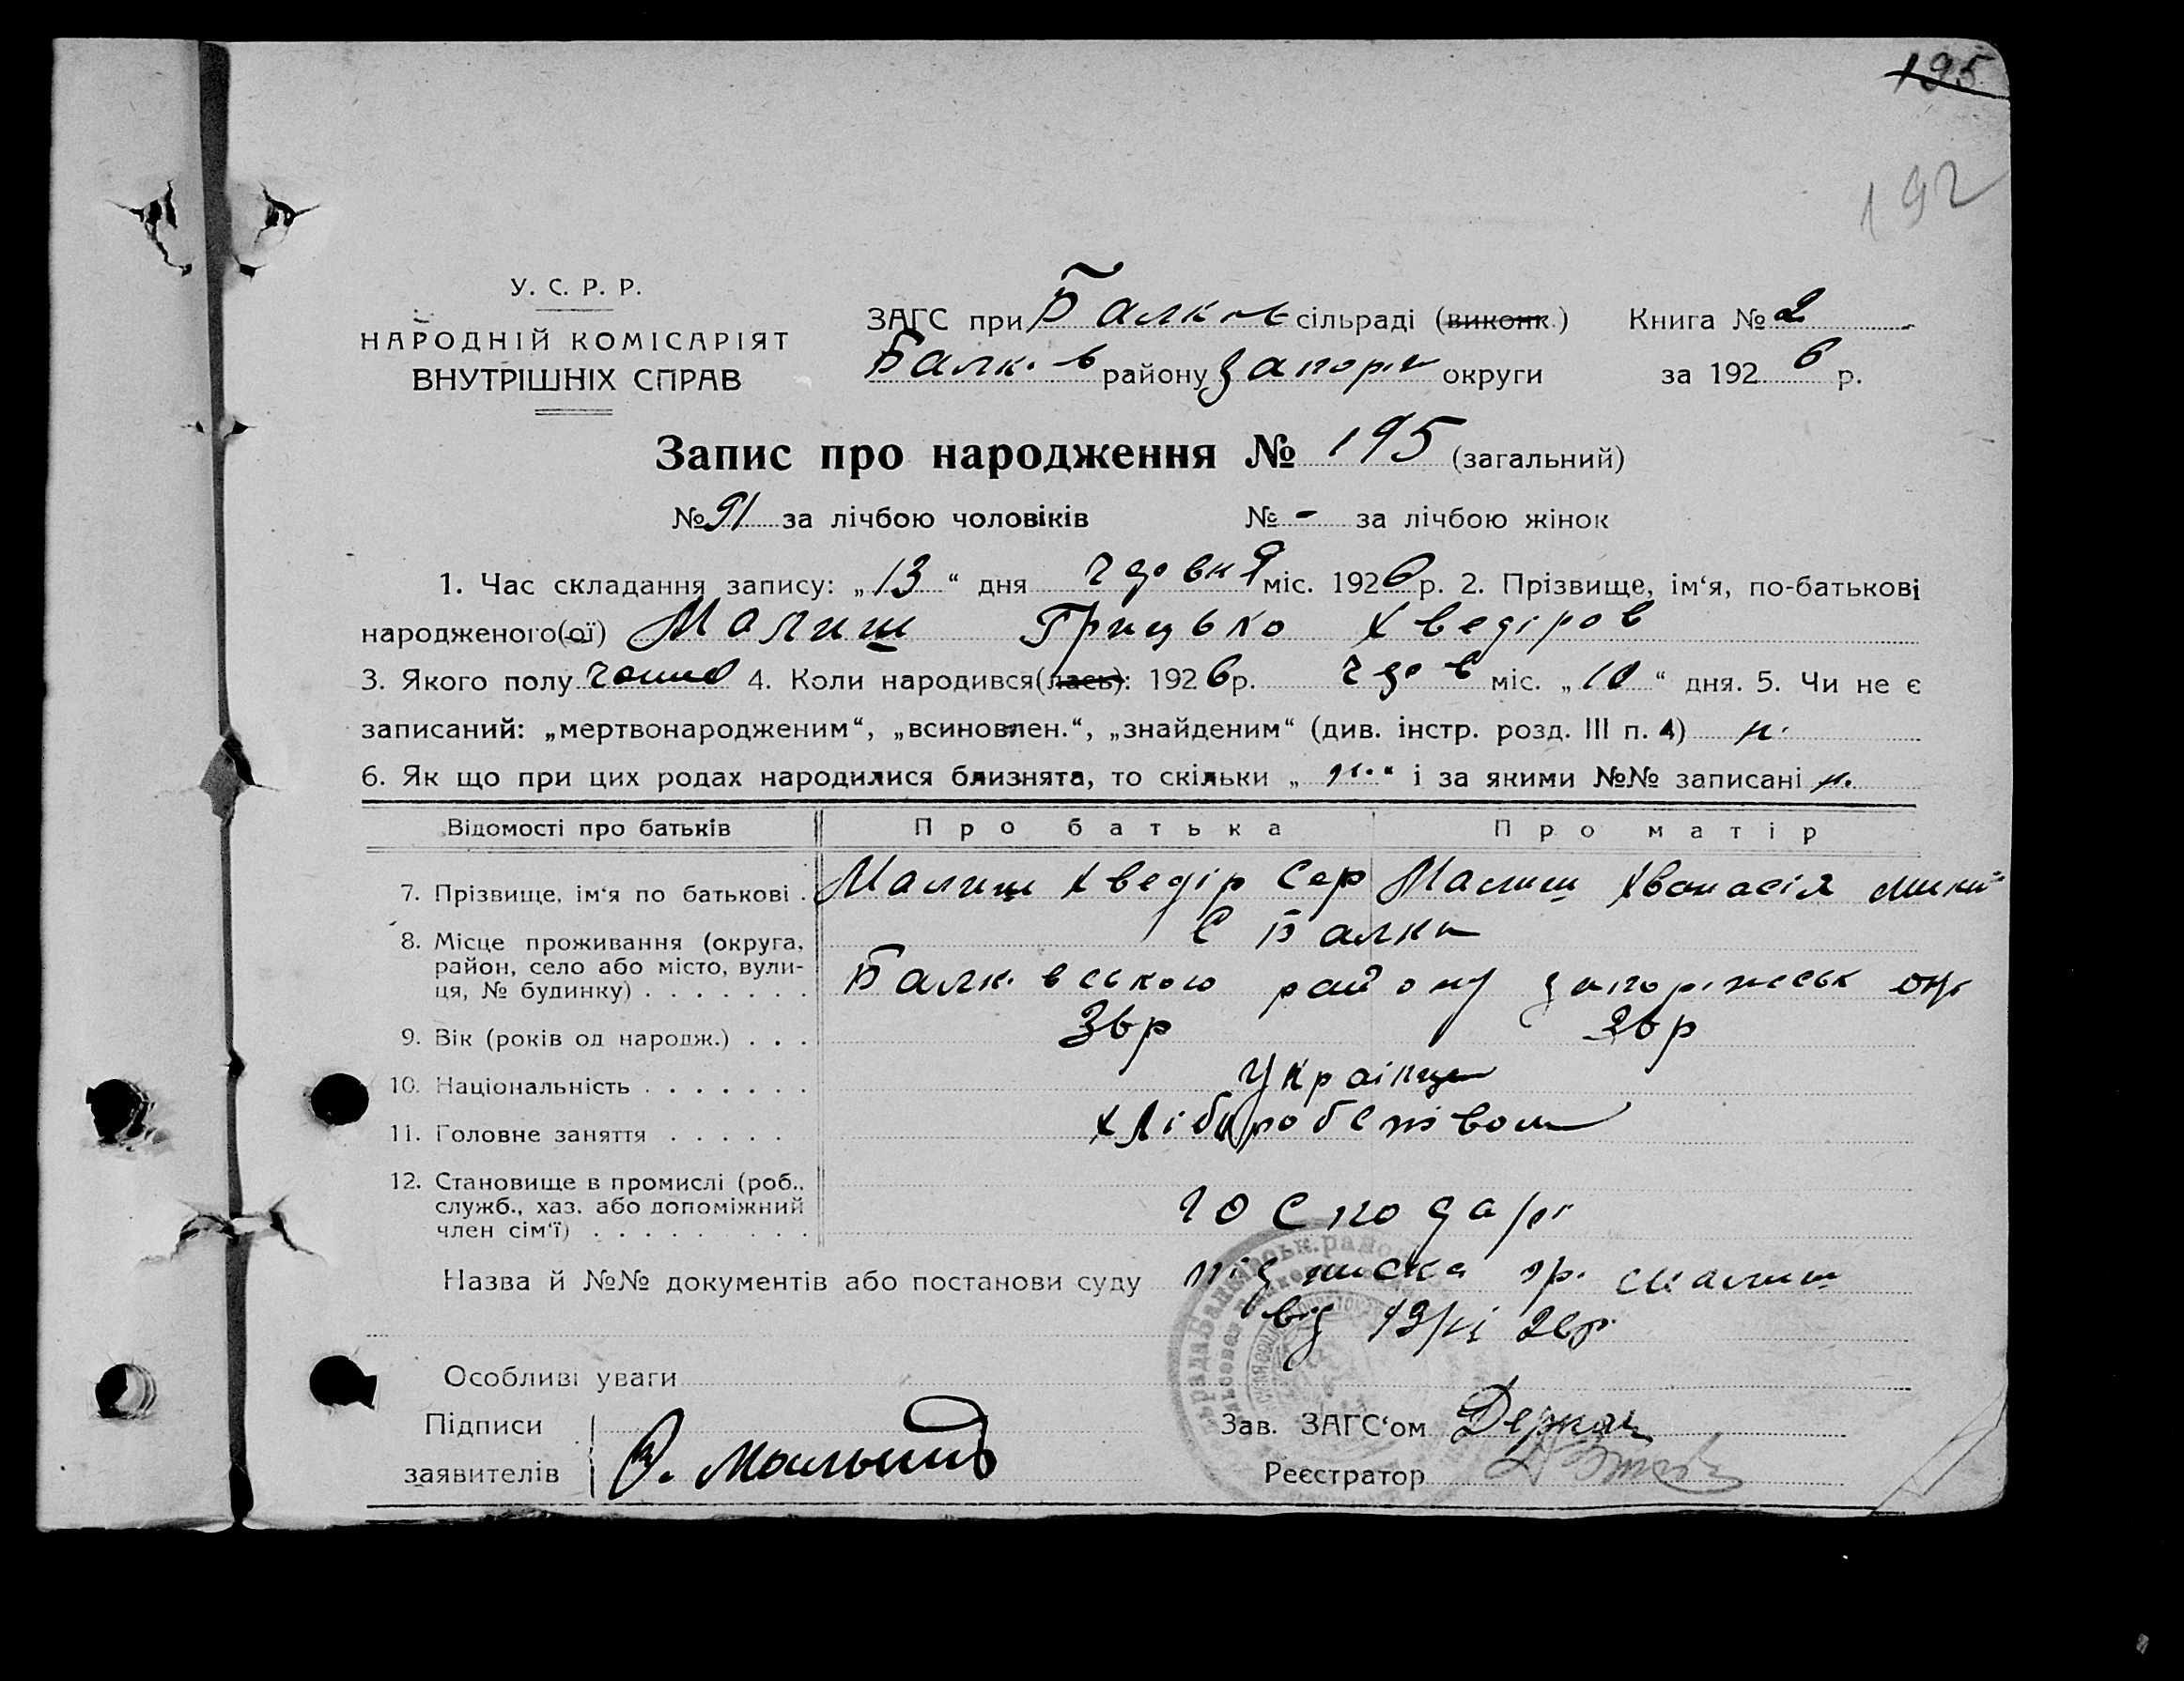 195
192
У. С. Р. Р.
НАРОДНІЙ КОМІСАРІЯТ
ВНУТРІШНІХ СПРАВ
ЗАГС при Балків сільраді (виконк.) Книга № 2
Балк. в району Запоріж округи за 1926 р.
Запис про народження № 195 (загальний)
№ 91 за лічбою чоловіків № - за лічбою жінок
1. Час складання запису: „13“ дня міс. 1926 р. 2. Прізвище, ім‘я, по-батькові
народженого(ої) Малиш Грицько Хведіров
3. Якого полу 4. Коли народився(лась): 1926 р. міс. „10“ дня. 5. Чи не є
записаний: „мертвонародженим“, „всиновлен.“, „знайденим“ (див. інстр. розд. III п. 4) н.
6. Як що при цих родах народилися близнята, то скільки „н.“ і за якими №№ записані н.
Відомості про батьків Про батька Про матір
7. Прізвище, ім‘я по батькові . Малиш Хведір Сер Малиш Хванасія Мики
8. Місце проживання (округа, С Балки
район, село або місто, вули-
ця, № будинку) . . . . . . . Балк. вського району Запоріжськ окр
9. Вік (років од народж.) . . . 36р 26р
10. Національність . . . . . . . Українци
11. Головне заняття . . . . .
12. Становище в промислі (роб.,
служб., хаз. або допоміжний господарі
член сім‘ї) . . . . . . . . .
Назва й №№ документів або постанови суду підписка гр. Малиш
від 13/VI 26р.
Особливі уваги
Підписи
Зав. ЗАГС‘ом Деркач
заявителів Малышъ
Реєстратор